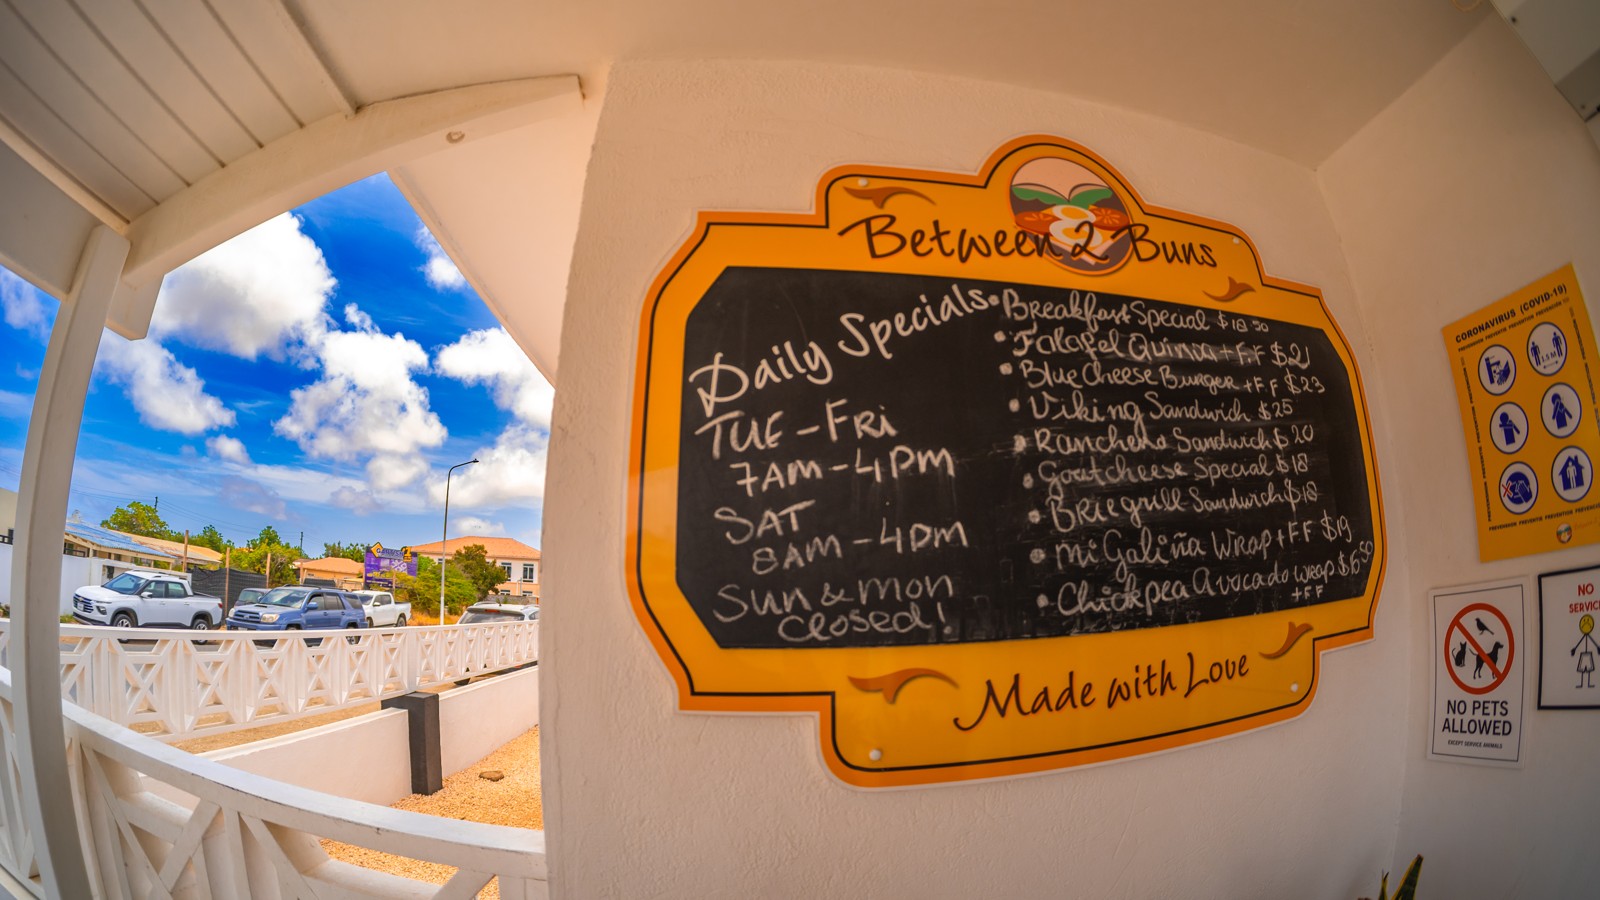 Between 2 Buns
Daily Specials
TUE - FRI
7AM - 4PM
SAT
8AM - 4PM
SUN & MON
Closed!
• Breakfast Special $18.50
• Falafel Quinoa + FF $21
• Blue Cheese Burger + FF $23
• Viking Sandwich $25
• Ranchero Sandwich $20
• Goatcheese Special $18
• Brie grill Sandwich $18
• Mi Galiña Wrap + FF $19
• Chickpea Avocado wrap
+ FF
Made with Love
CORONAVIRUS (COVID-19)
1.5 M
NO PETS
ALLOWED
EXCEPT SERVICE ANIMALS
NO